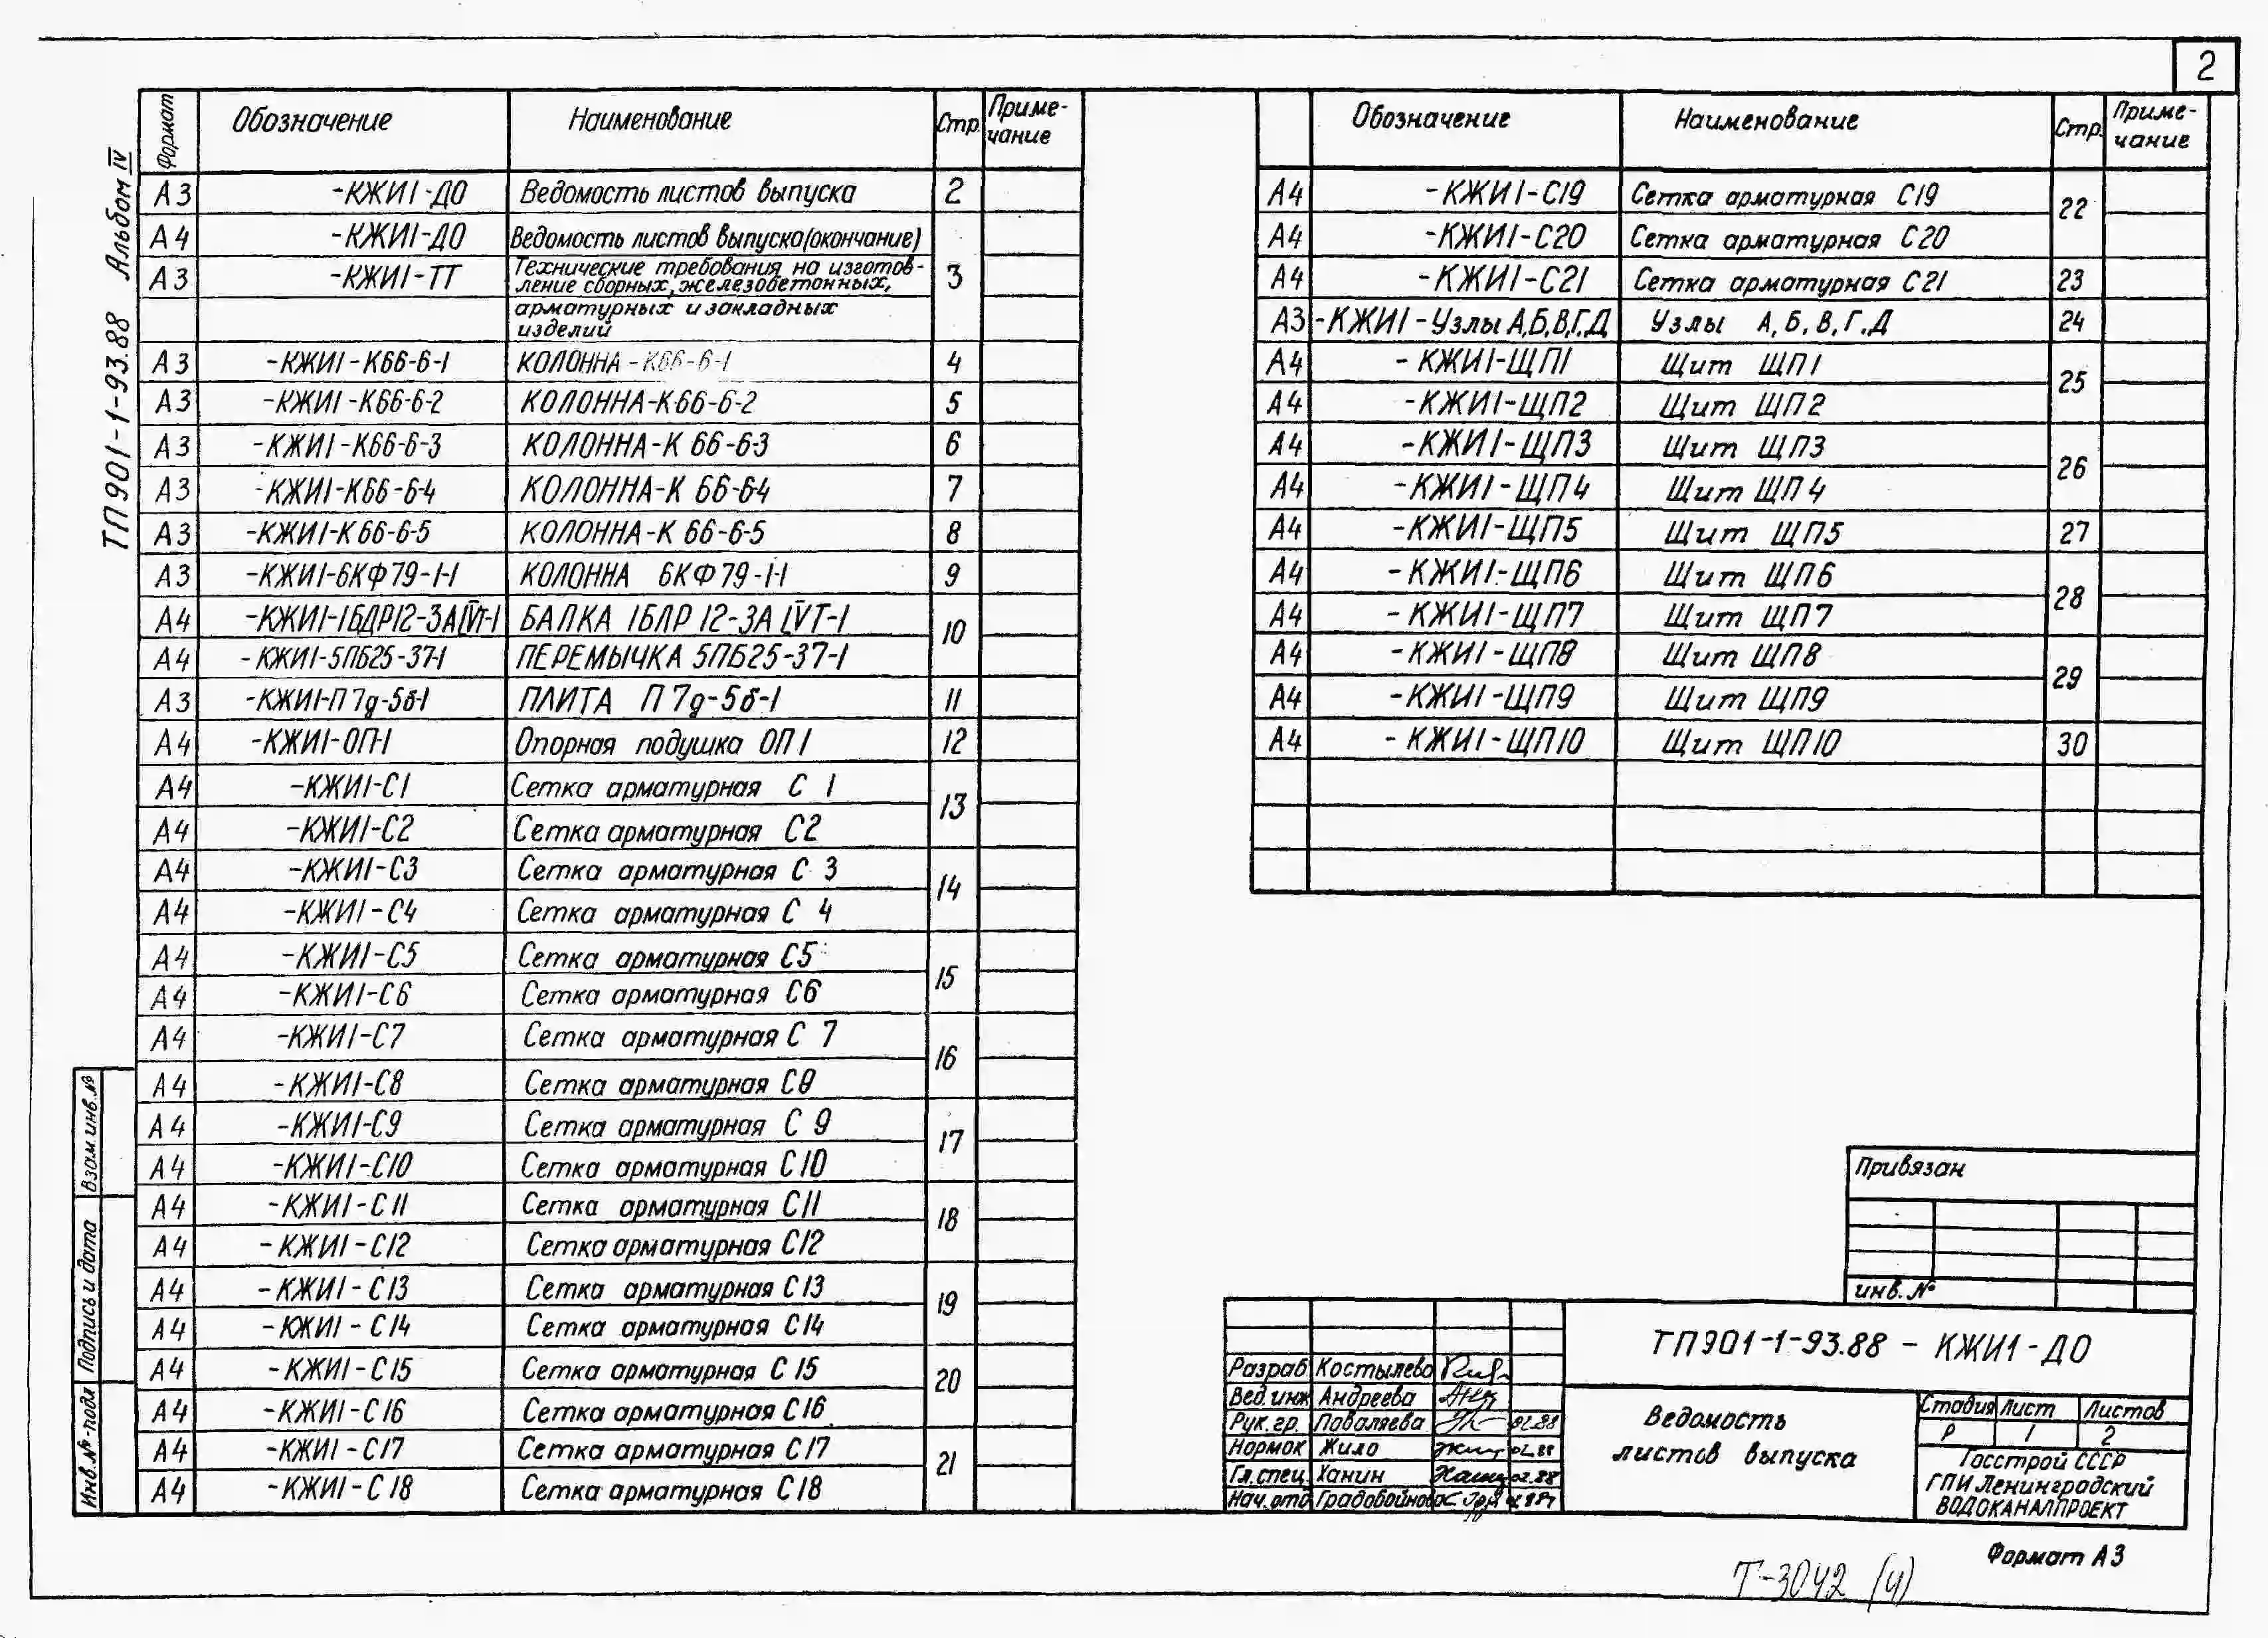 2
ТП901-1-93.88 Альбом IV
Формат Обозначение Наименование Стр. Приме-
чание
А3 -КЖИ1-ДО Ведомость листов выпуска 2
А4 -КЖИ1-ДО Ведомость листов выпуска (окончание)
А3 -КЖИ1-ТТ Технические требования на изготов-
ление сборных, железобетонных, 3
арматурных и закладных
изделий
А3 -КЖИ1-К66-6-1 КОЛОННА-К66-6-1 4
А3 -КЖИ1-К66-6-2 КОЛОННА-К66-6-2 5
А3 -КЖИ1-К66-6-3 КОЛОННА-К 66-6-3 6
А3 -КЖИ1-К66-6-4 КОЛОННА-К 66-6-4 7
А3 -КЖИ1-К66-6-5 КОЛОННА-К 66-6-5 8
А3 -КЖИ1-6КФ79-1-1 КОЛОННА 6КФ79-1-1 9
А4 -КЖИ1-1БДР12-3АIVт-1 БАЛКА 1БДР 12-3А IVТ-1 10
А4 -КЖИ1-5ПБ25-37-1 ПЕРЕМЫЧКА 5ПБ25-37-1
А3 -КЖИ1-П7д-5б-1 ПЛИТА П7д-5б-1 11
А4 -КЖИ1-ОП-1 Опорная подушка ОП1 12
А4 -КЖИ1-С1 Сетка арматурная С 1 13
А4 -КЖИ1-С2 Сетка арматурная С2
А4 -КЖИ1-С3 Сетка арматурная С 3 14
А4 -КЖИ1-С4 Сетка арматурная С 4
А4 -КЖИ1-С5 Сетка арматурная С5 15
А4 -КЖИ1-С6 Сетка арматурная С6
А4 -КЖИ1-С7 Сетка арматурная С 7 16
А4 -КЖИ1-С8 Сетка арматурная С8
А4 -КЖИ1-С9 Сетка арматурная С 9 17
А4 -КЖИ1-С10 Сетка арматурная С10
А4 -КЖИ1-С11 Сетка арматурная С11 18
А4 -КЖИ1-С12 Сетка арматурная С12
А4 -КЖИ1-С13 Сетка арматурная С13 19
А4 -КЖИ1-С14 Сетка арматурная С14
А4 -КЖИ1-С15 Сетка арматурная С15 20
А4 -КЖИ1-С16 Сетка арматурная С16
А4 -КЖИ1-С17 Сетка арматурная С17 21
А4 -КЖИ1-С18 Сетка арматурная С18
Обозначение Наименование Стр. Приме-
чание
А4 -КЖИ1-С19 Сетка арматурная С19 22
А4 -КЖИ1-С20 Сетка арматурная С20
А4 -КЖИ1-С21 Сетка арматурная С21 23
А3 -КЖИ1-Узлы А,Б,В,Г,Д Узлы А, Б, В, Г, Д 24
А4 -КЖИ1-ЩП1 Щит ЩП1 25
А4 -КЖИ1-ЩП2 Щит ЩП2
А4 -КЖИ1-ЩП3 Щит ЩП3 26
А4 -КЖИ1-ЩП4 Щит ЩП4
А4 -КЖИ1-ЩП5 Щит ЩП5 27
А4 -КЖИ1-ЩП6 Щит ЩП6 28
А4 -КЖИ1-ЩП7 Щит ЩП7
А4 -КЖИ1-ЩП8 Щит ЩП8 29
А4 -КЖИ1-ЩП9 Щит ЩП9
А4 -КЖИ1-ЩП10 Щит ЩП10 30
Взам. инв. №
Подпись и дата
Инв. № подл
Привязан
инв. №
Разраб Костылева
Вед. инж Андреева
Рук. гр. Поваляева 02.88
Нормок Жило 02.88
Гл. спец. Ханин 02.88
Нач. отд Градобойнова
ТП901-1-93.88 - КЖИ1-ДО
Ведомость
листов выпуска
Стадия Лист Листов
Р 1 2
Госстрой СССР
ГПИ Ленинградский
ВОДОКАНАЛПРОЕКТ
Формат А3
Т-3042 (4)